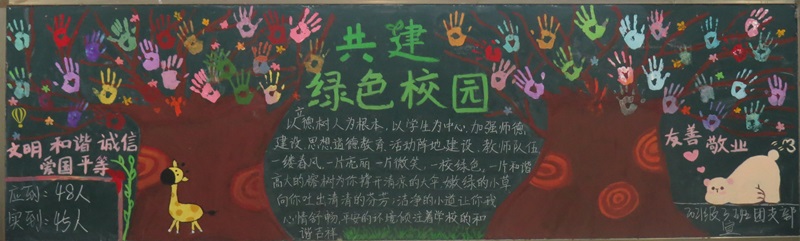 共建
绿色校园
以德树人为根本，以学生为中心，加强师德
建设，思想道德教育，活动阵地建设，教师队伍
一缕春风，一片花雨，一片微笑，一校绿色，一片和谐
高大的榕树为你撑开清凉的伞，嫩绿的小草
向你吐出清清的芬芳；洁净的小道让你我
心情舒畅，平安的环境倾注着学校的和
谐吉祥
文明 和谐 诚信
爱国 平等
应到：48人
实到：45人
友善 敬业
团支部
宣